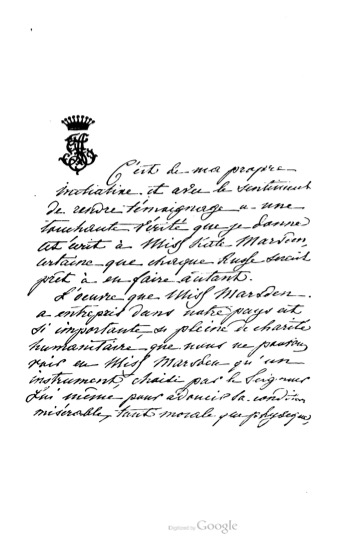 C'est de ma propre
initiative et avec le sentiment
de rendre témoignage a une
touchante vérité que je donne
cet écrit à Miss Kate Marsden,
certaine que chaque Russe serait
prêt à en faire autant.
L'oeuvre que Miss Marsden
a entrepris dans notre pays est
si importante, si pleine de charité
humanitaire, que nous ne pouvons
voir en Miss Marsden qu'un
instrument, choisi par le Seigneur
Lui même pour adoucir la condition
misérable, tant morale que physique,
Digitized by Google